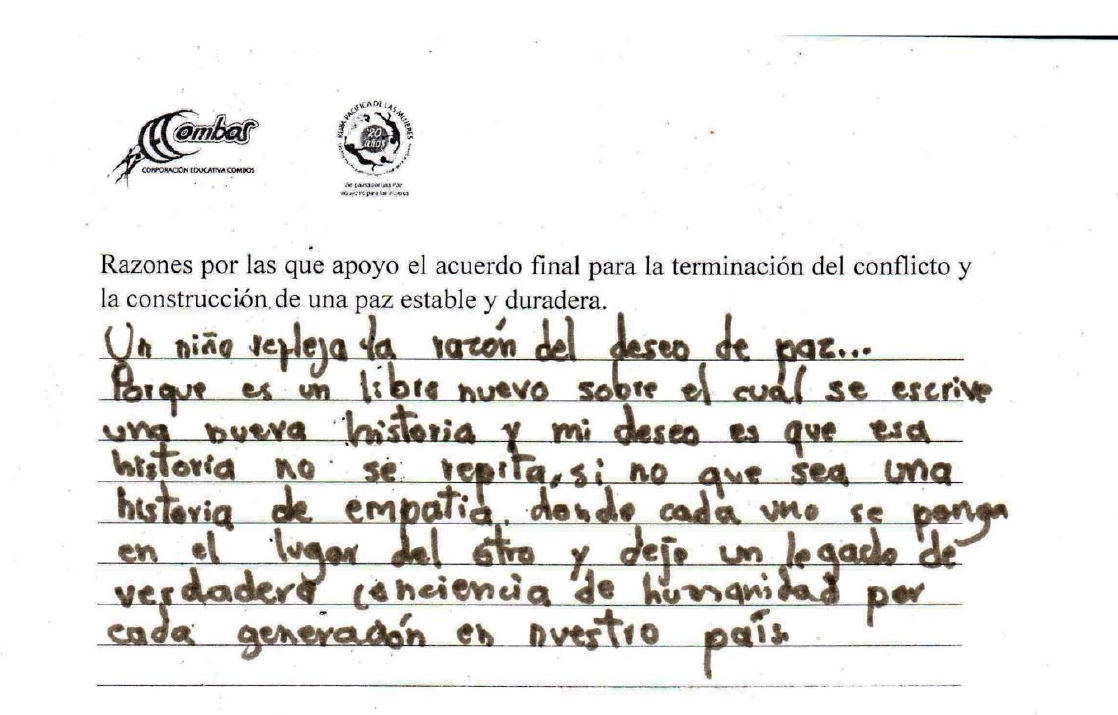 Combos
CORPORACIÓN EDUCATIVA COMBOS
RUTA PACÍFICA DE LAS MUJERES
20
años
Razones por las que apoyo el acuerdo final para la terminación del conflicto y
la construcción de una paz estable y duradera.
Un niño refleja la razón del deseo de paz...
Porque es un libro nuevo sobre el cuál se escrive
una nueva historia y mi deseo es que esa
historia no se repita, si no que sea una
historia de empatia, donde cada uno se ponga
en el lugar del otro y deje un legado de
verdadera conciencia de humanidad por
cada generación en nuestro país